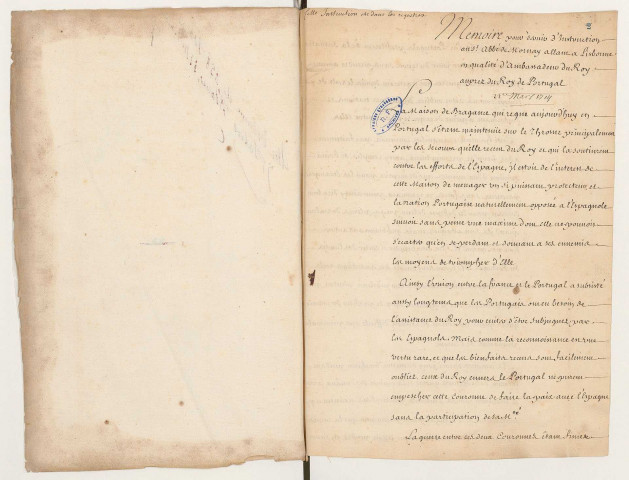 Cette Instruction est dans les registres
Memoire pour servir d'Instruction
au Sr Abbé de Mornay allant a Lisbonne
en qualité d'Ambassadeur du Roy
aupres du Roy de Portugal
Mars 1714
La Maison de Bragance qui regne aujourd'huy en
Portugal s'étant maintenüe sur le Throne principalement
par les secours qu'elle receut du Roy et qui la soutinrent
contre les efforts de l'Espagne, il estoit de l'interest de
cette Maison de menager un si puissant protecteur et
la nation Portugaise naturellement opposée a l'Espagnole
suivoit sans peine une maxime dont elle ne pouvoit
s'écarter qu'en se perdant et donnant a ses ennemis
les moyens de triompher d'Elle
Ainsy l'union entre la france et le Portugal a subsisté
aussy longtems que les Portugais ont eu besoin de
l'assistance du Roy pour eviter d'être subjuguez par
les Espagnols. Mais comme la reconnoissance est une
vertu rare, et que les bienfaits receus sont facilement
oubliez ceux du Roy envers le Portugal ne purent
empescher cette Couronne de faire la paix avec l'Espagne
sans la participation de sa Mté
La guerre entre ces deux Couronnes étant finie